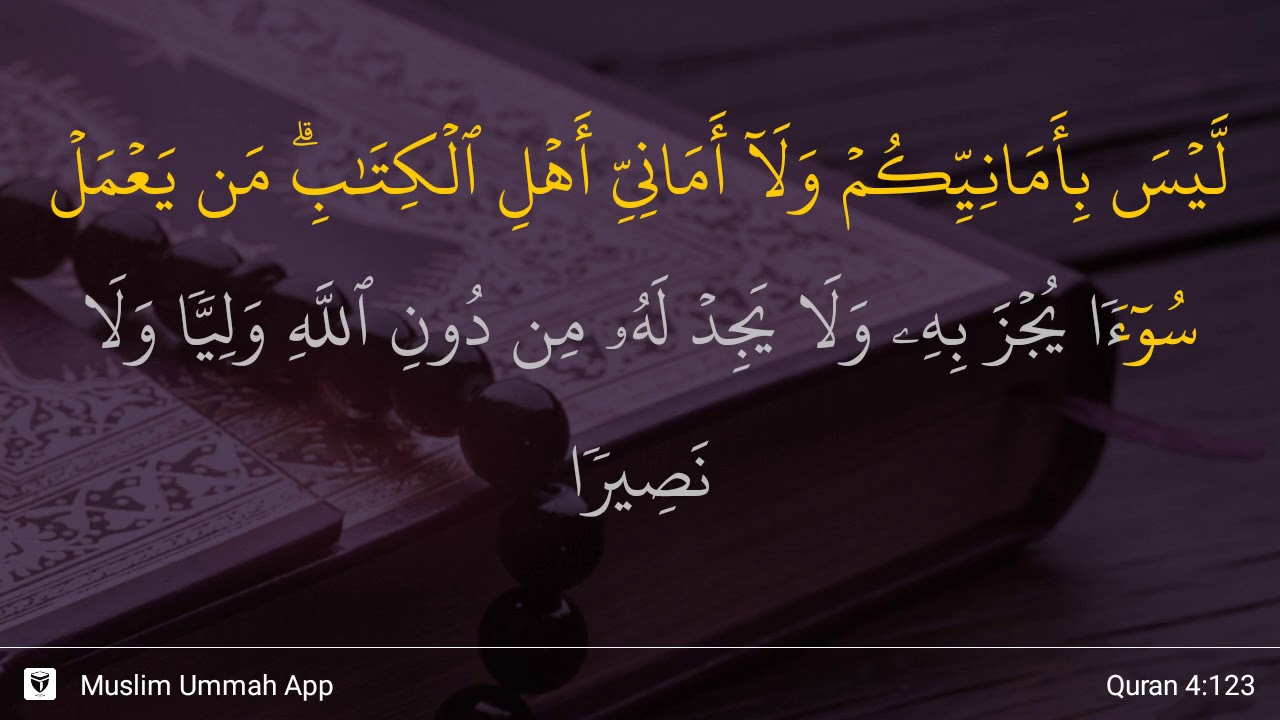 لَّيۡسَ بِأَمَانِيِّكُمۡ وَلَآ أَمَانِيِّ أَهۡلِ ٱلۡكِتَٰبِۗ مَن يَعۡمَلۡ
سُوٓءَٗا يُجۡزَ بِهِۦ وَلَا يَجِدۡ لَهُۥ مِن دُونِ ٱللَّهِ وَلِيَّٗا وَلَا
نَصِيرَٗا
Muslim Ummah App
Quran 4:123